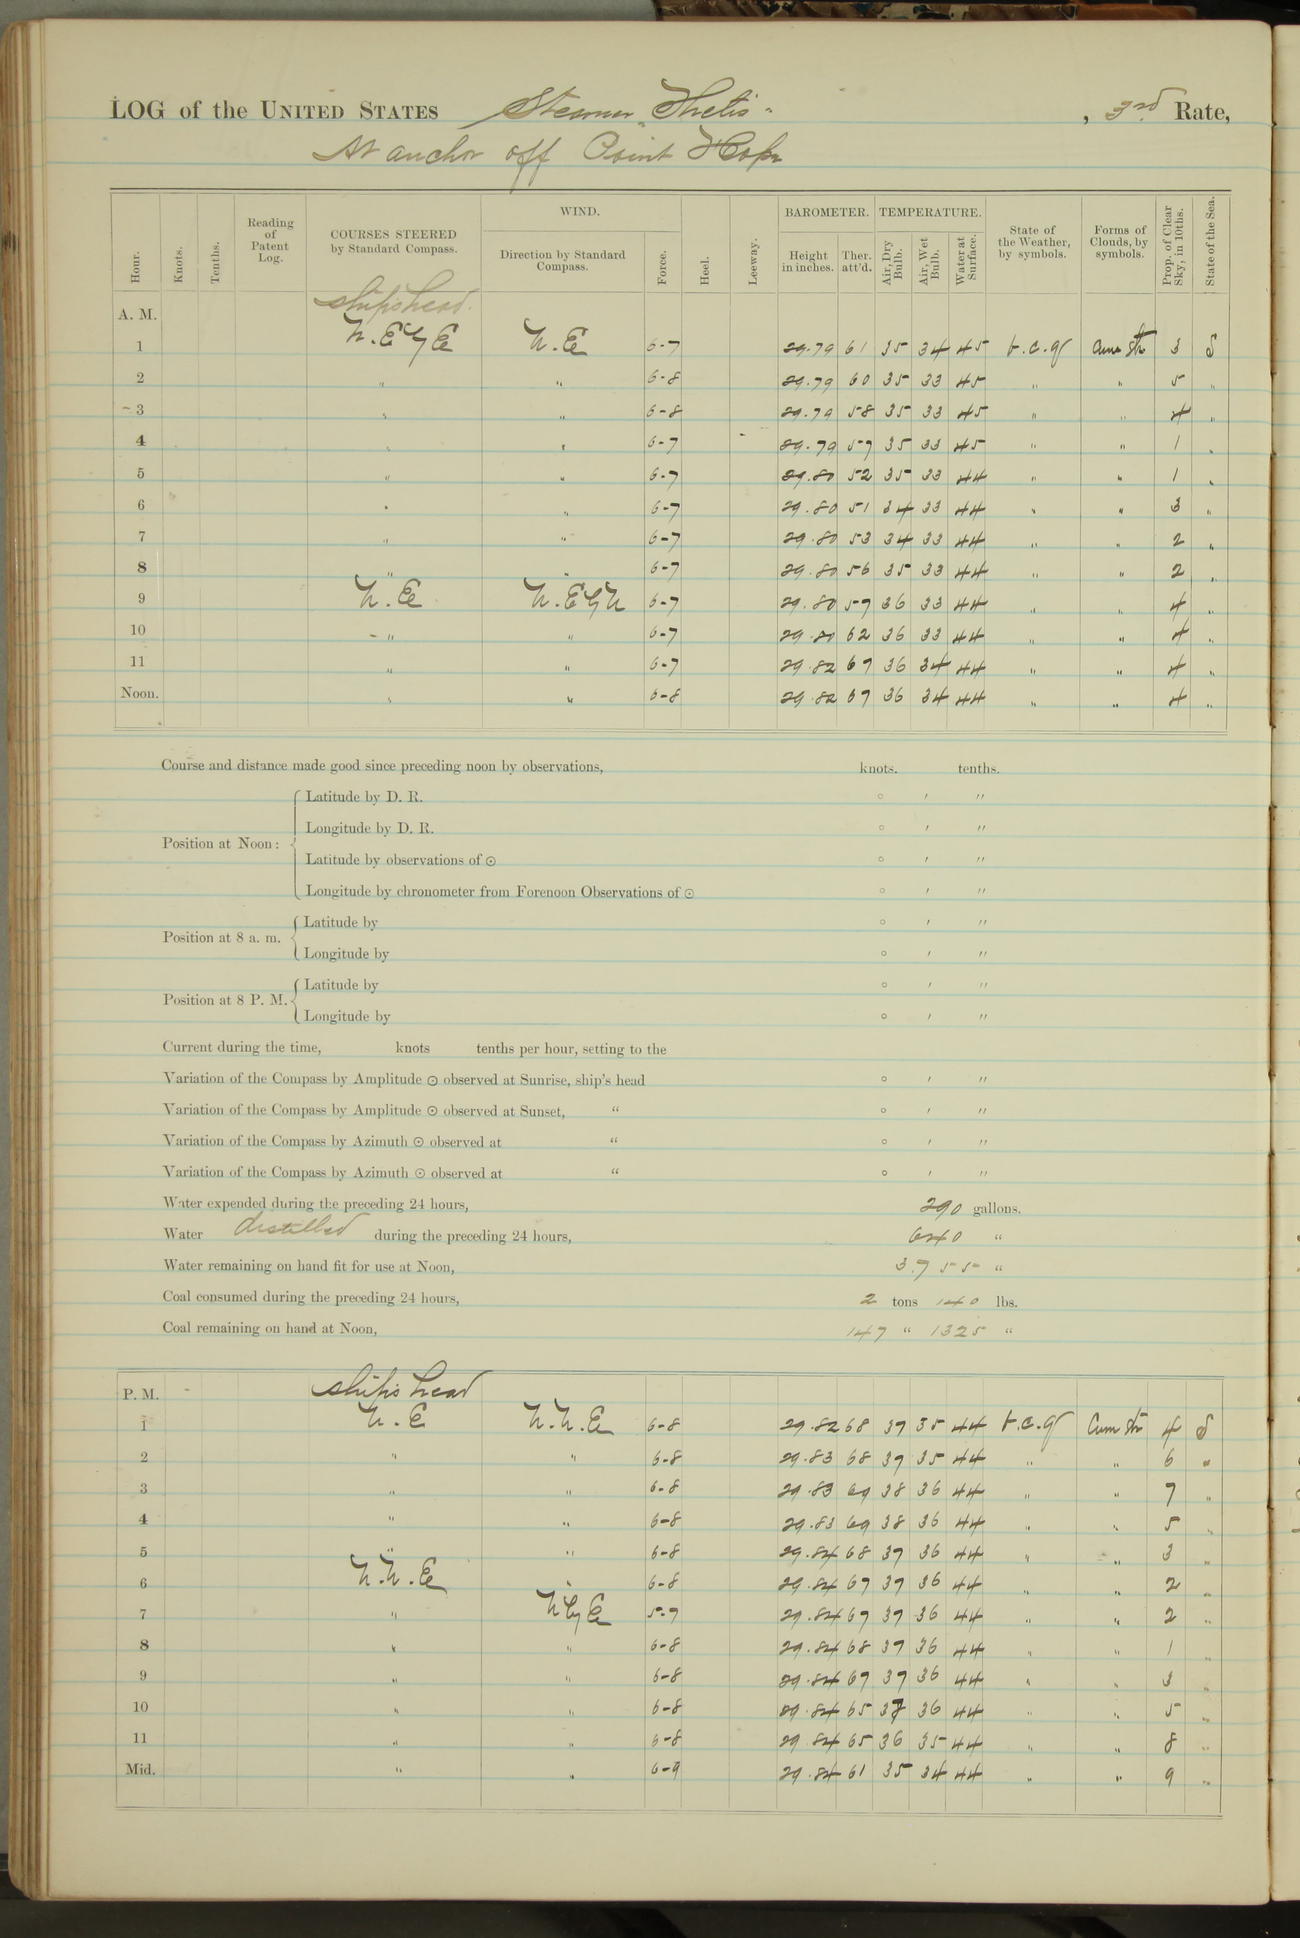 LOG of the UNITED STATES Steamer "Thetis" , 3rd Rate,
At anchor off Point Hope
Hour. Knots. Tenths. Reading of Patent Log. COURSES STEERED by Standard Compass. WIND. Direction by Standard Compass. Force. Heel. Leeway. BAROMETER. Height in inches. Ther. att'd. TEMPERATURE. Air, Dry Bulb. Air, Wet Bulb. Water at Surface. State of the Weather, by symbols. Forms of Clouds, by symbols. Prop. of Clear Sky, in 10ths. State of the Sea.
A. M. ship's head.
1 N.E by E N.E 6-7 29.79 61 35 34 45 b.c.q Cum Str 3 S
2 " " 6-8 29.79 60 35 33 45 " " 5 "
3 " " 6-8 29.79 58 35 33 45 " " 4 "
4 " " 6-7 29.79 57 35 33 45 " " 1 "
5 " " 6-7 29.80 52 35 33 44 " " 1 "
6 " " 6-7 29.80 51 34 33 44 " " 3 "
7 " " 6-7 29.80 53 34 33 44 " " 2 "
8 " " 6-7 29.80 56 35 33 44 " " 2 "
9 N.E N.E by N 6-7 29.80 59 36 33 44 " " 4 "
10 " " 6-7 29.80 62 36 33 44 " " 4 "
11 " " 6-7 29.82 67 36 34 44 " " 4 "
Noon. " " 6-8 29.82 67 36 34 44 " " 4 "
Course and distance made good since preceding noon by observations, knots. tenths.
Position at Noon: Latitude by D. R. ° ′ ″
Longitude by D. R. ° ′ ″
Latitude by observations of ⊙ ° ′ ″
Longitude by chronometer from Forenoon Observations of ⊙ ° ′ ″
Position at 8 a. m. Latitude by ° ′ ″
Longitude by ° ′ ″
Position at 8 P. M. Latitude by ° ′ ″
Longitude by ° ′ ″
Current during the time, knots tenths per hour, setting to the
Variation of the Compass by Amplitude ⊙ observed at Sunrise, ship's head ° ′ ″
Variation of the Compass by Amplitude ⊙ observed at Sunset, " ° ′ ″
Variation of the Compass by Azimuth ⊙ observed at " ° ′ ″
Variation of the Compass by Azimuth ⊙ observed at " ° ′ ″
Water expended during the preceding 24 hours, 290 gallons.
Water distilled during the preceding 24 hours, 640 "
Water remaining on hand fit for use at Noon, 3.755 "
Coal consumed during the preceding 24 hours, 2 tons 140 lbs.
Coal remaining on hand at Noon, 147 " 1325 "
P. M. ship's head
1 N.E N.N.E 6-8 29.82 68 37 35 44 b.c.q Cum Str 4 S
2 " " 6-8 29.83 68 37 35 44 " " 6 "
3 " " 6-8 29.83 69 38 36 44 " " 7 "
4 " " 6-8 29.83 69 38 36 44 " " 5 "
5 " " 6-8 29.84 68 37 36 44 " " 3 "
6 N.N.E " 6-8 29.84 67 37 36 44 " " 2 "
7 " N by E 5-7 29.84 67 37 36 44 " " 2 "
8 " " 6-8 29.84 68 37 36 44 " " 1 "
9 " " 6-8 29.84 67 37 36 44 " " 3 "
10 " " 6-8 29.84 65 37 36 44 " " 5 "
11 " " 6-8 29.84 65 36 35 44 " " 8 "
Mid. " " 6-9 29.84 61 35 34 44 " " 9 "